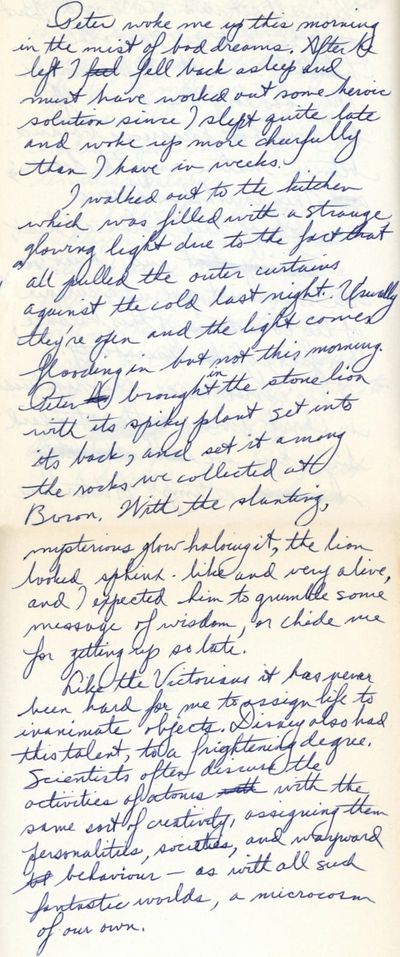 Peter woke me up this morning
in the mist of bad dreams. After he
left I feel fell back asleep and
must have worked out some heroic
solution since I slept quite late
and woke up more cheerfully
than I have in weeks.
I walked out to the kitchen
which was filled with a strange
glowing light due to the fact that
all pulled the outer curtains
against the cold last night. Usually
they're open and the light comes
flooding in but not this morning.
Peter brought in the stone lion
with its spiky plant set into
its back, and set it among
the rocks we collected at
Byron. With the slanting,
mysterious glow haloing it, the lion
looked sphinx-like and very alive,
and I expected him to grumble some
message of wisdom, or chide me
for getting up so late.
Like the Victorians it has never
been hard for me to assign life to
inanimate objects. Disney also had
this talent, to a frightening degree.
Scientists often discuss the
activities of atoms with with the
same sort of creativity, assigning them
personalities, societies, and wayward
behaviour — as with all such
fantastic worlds, a microcosm
of our own.